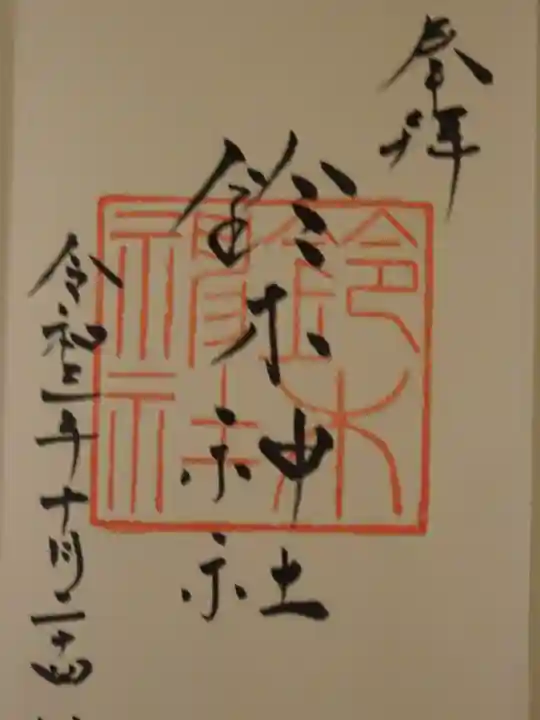 奉拝
鈴木神社
鈴木神社
令和二年十月二十四